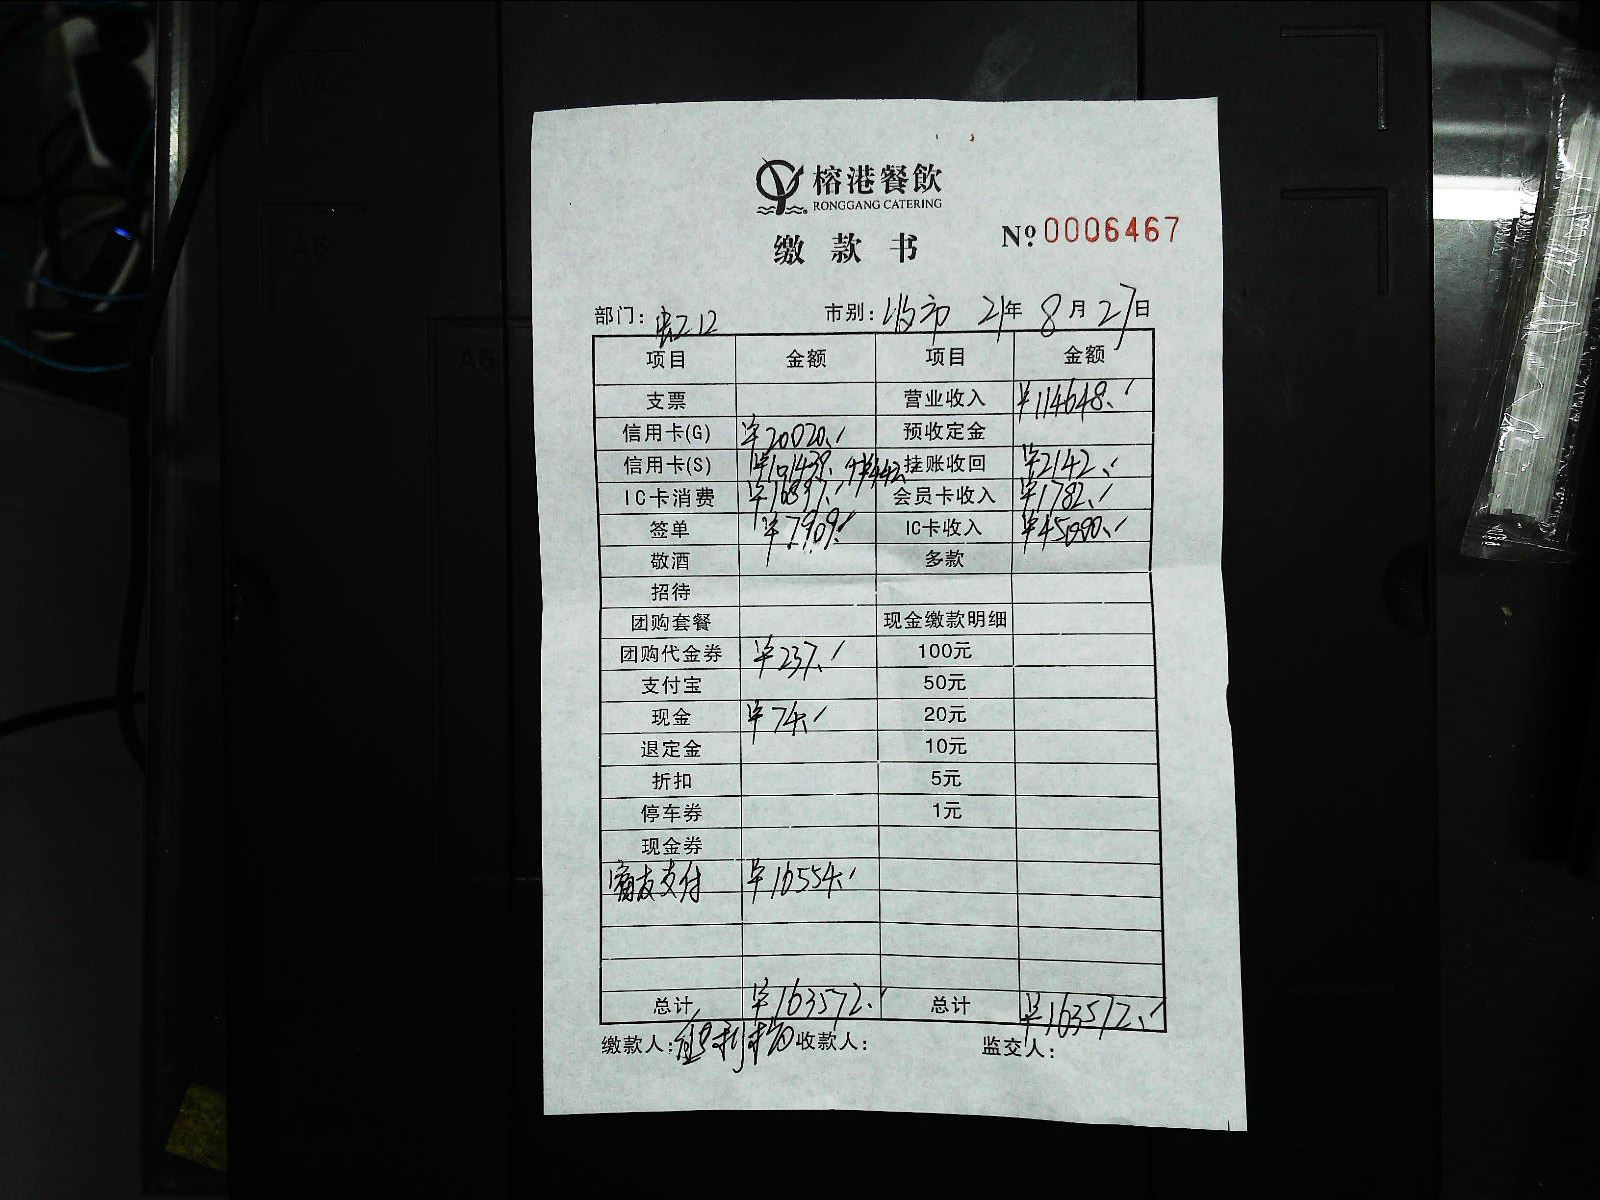 榕港餐飲
RONGGANG CATERING
缴款书 № 0006467
部门: 市别: 21年 8月 27日
项目 金额 项目 金额
支票 营业收入 ¥114648.
信用卡(G) ¥20020. 预收定金
信用卡(S) ¥101439. +¥442. 挂账收回 ¥2142.
IC卡消费 ¥16897. 会员卡收入 ¥1782.
签单 ¥7909. IC卡收入 ¥45000.
敬酒 多款
招待
团购套餐 现金缴款明细
团购代金券 ¥237. 100元
支付宝 50元
现金 ¥74. 20元
退定金 10元
折扣 5元
停车券 1元
现金券
支付 ¥16554.
总计 ¥163572. 总计 ¥163572.
缴款人: 收款人: 监交人: